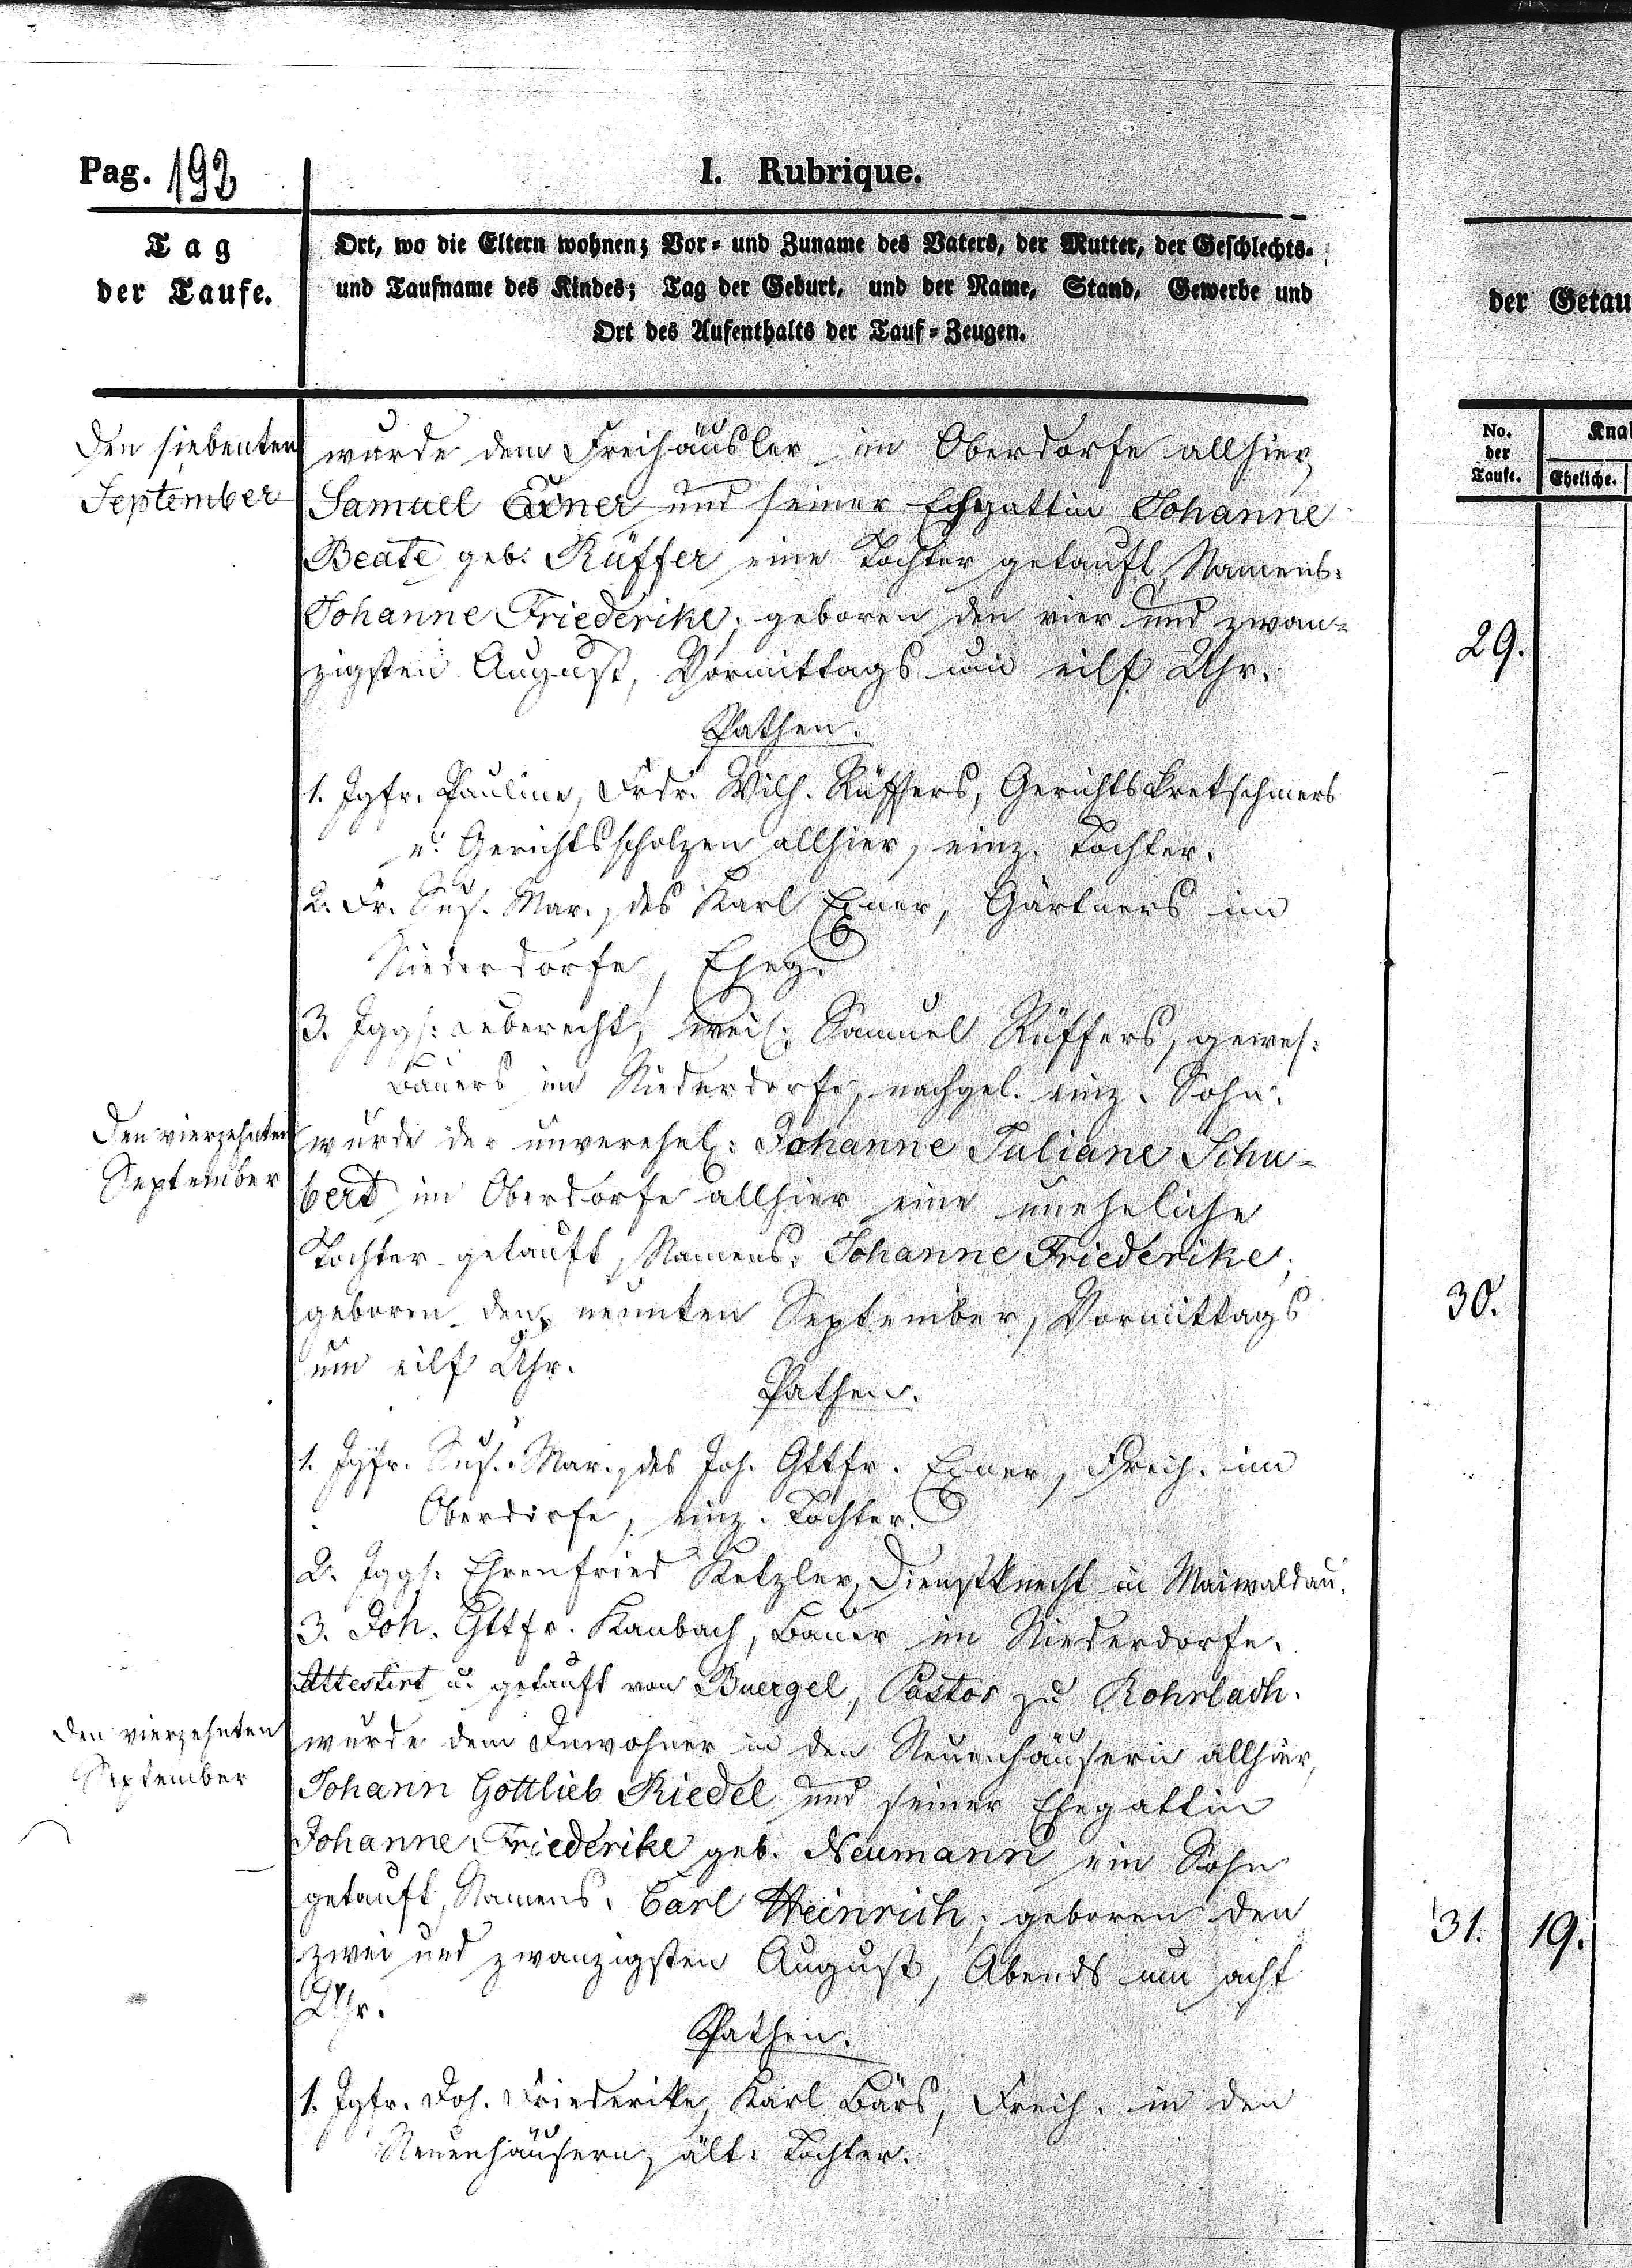 Pag. 192
I. Rubrique.
Tag
der Taufe.
Ort, wo die Eltern wohnen; Vor- und Zuname des Vaters, der Mutter, der Geschlechts-
und Taufname des Kindes; Tag der Geburt, und der Name, Stand, Gewerbe und
Ort des Aufenthalts der Tauf-Zeugen.
der Getau
No.
der
Taufe.
Kna
Eheliche.
Den siebenten
September
wurde dem Freihäusler im Oberdorfe allhier,
Samuel Exner und seiner Ehegattin Johanne
Beate geb. Rüffer eine Tochter getauft, Namens:
Johanne Friederike; geboren den vier und zwan-
zigsten August, Vormittags um eilf Uhr.
29.
Pathen.
1. Jgfr. Pauline, Frdr. Wilh. Rüffers, Gerichtskretschmers
u. Gerichtsscholzen allhier, einz. Tochter.
2. Fr. Sus. Mar., des Karl Exner, Gärtners im
Niederdorfe, Eheg.
3. Jggs. Leberecht, weil. Samuel Rüffers, gewes:
Bauers im Niederdorfe, nachgel. einz. Sohn.
Den vierzehnten
September
wurde der unverehel: Johanne Juliane Schu-
bert im Oberdorfe allhier eine uneheliche
Tochter getauft, Namens: Johanne Friederike;
geboren den neunten September, Vormittags
um eilf Uhr.
30.
Pathen.
1. Jgfr. Sus. Mar., des Joh. Gttfr. Exner, Freih. im
Oberdorfe, einz. Tochter.
2. Jggs. Ehrenfried Ketzler, Dienstknecht in Maiwaldau.
3. Joh. Gttfr. Kambach, Bauer im Niederdorfe.
Attestirt u. getauft von Buergel, Pastor zu Rohrlach.
Den vierzehnten
September
wurde dem Inwohner in den Neuenhäusern allhier,
Johann Gottlieb Riedel und seiner Ehegattin
Johanne Friederike geb. Neumann ein Sohn
getauft, Namens: Carl Heinrich; geboren den
zwei und zwanzigsten August, Abends um acht
Uhr.
31. 19.
Pathen.
1. Jgfr. Joh. Friederike, Karl Bärs, Freih. in den
Neuenhäusern, ält. Tochter.